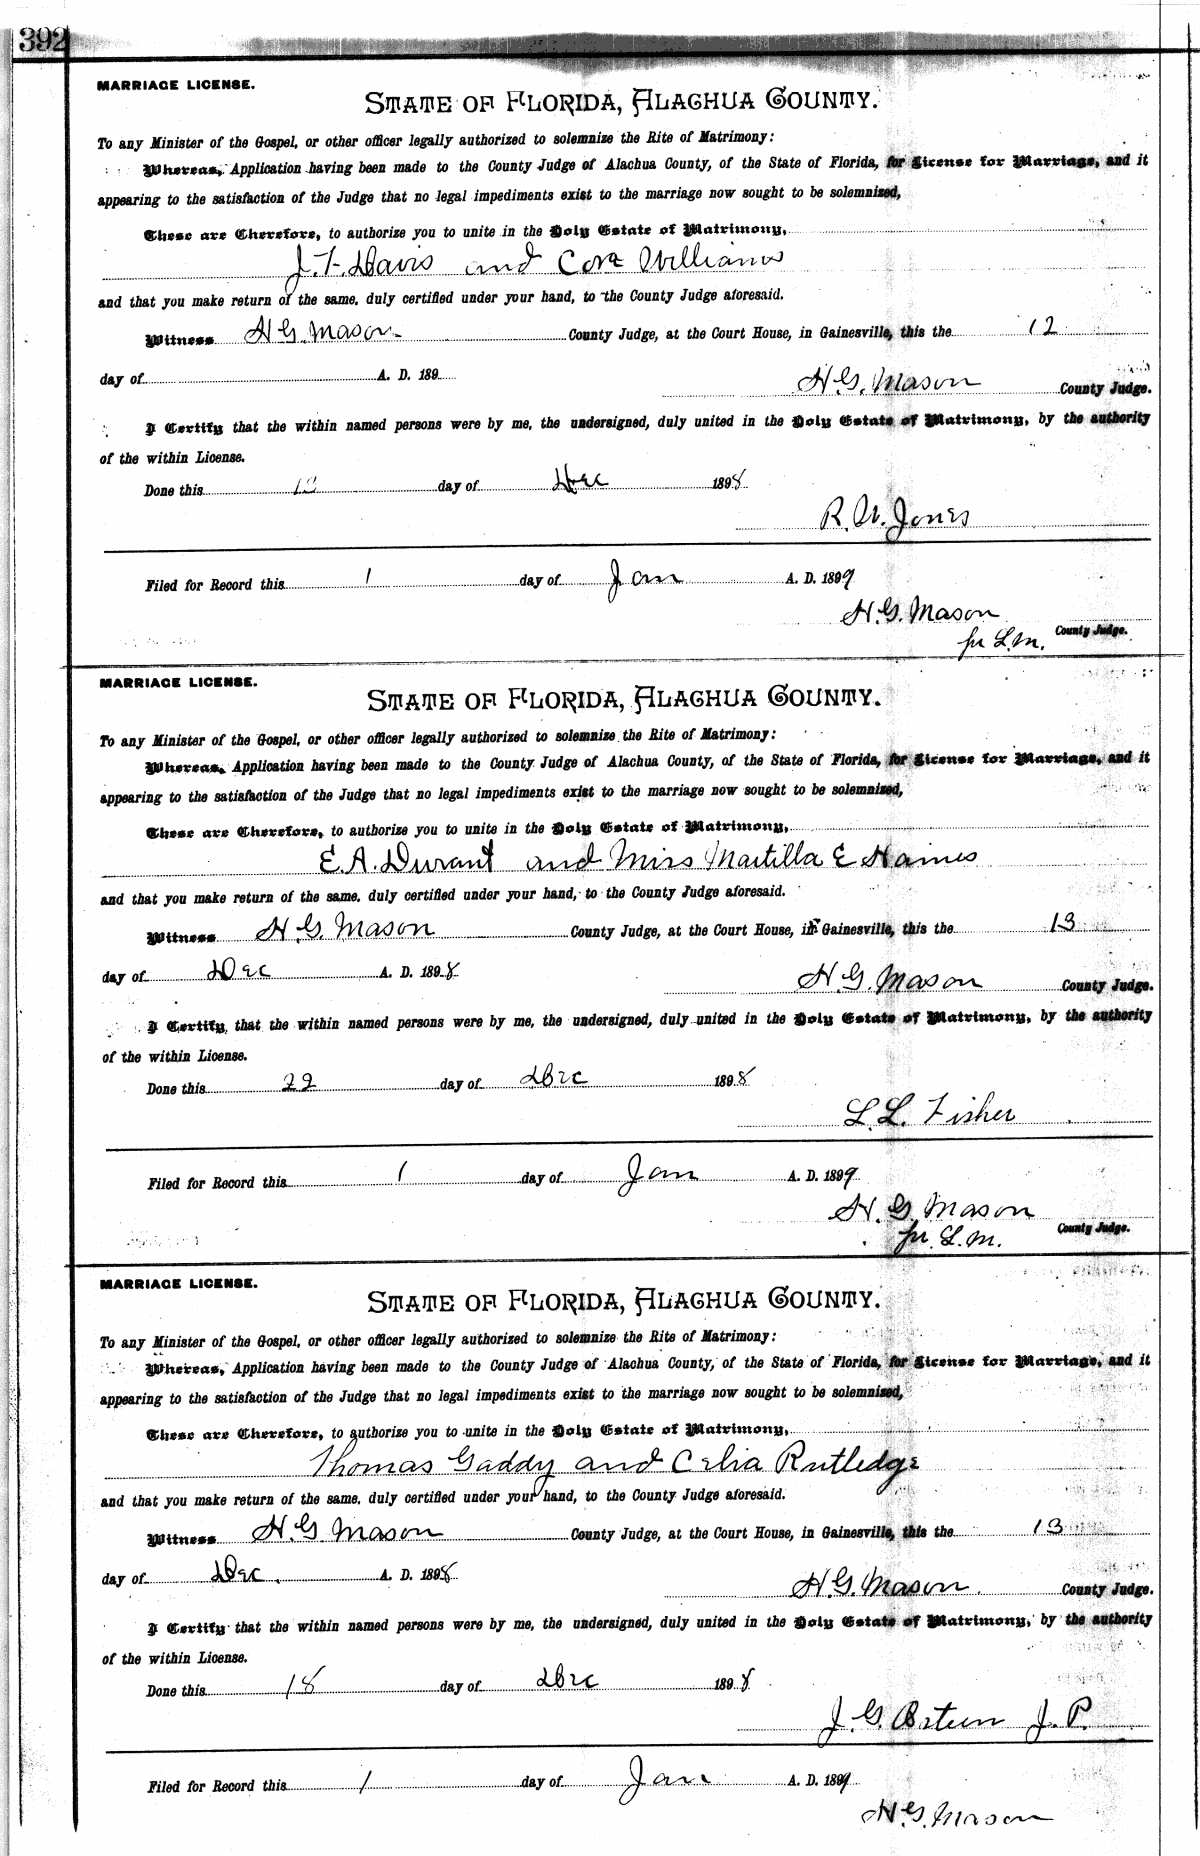 392
MARRIAGE LICENSE.
STATE OF FLORIDA, ALACHUA COUNTY.
To any Minister of the Gospel, or other officer legally authorized to solemnize the Rite of Matrimony:
Whereas, Application having been made to the County Judge of Alachua County, of the State of Florida, for License for Marriage, and it
appearing to the satisfaction of the Judge that no legal impediments exist to the marriage now sought to be solemnized,
These are Therefore, to authorize you to unite in the Holy Estate of Matrimony,
J. F. Davis and Cora Williams
and that you make return of the same, duly certified under your hand, to the County Judge aforesaid.
Witness H G. Mason County Judge, at the Court House, in Gainesville, this the 12
day of A. D. 189
H. G. Mason County Judge.
I Certify that the within named persons were by me, the undersigned, duly united in the Holy Estate of Matrimony, by the authority
of the within License.
Done this 13 day of Dec 1898
R. W. Jones
Filed for Record this 1 day of Jan A. D. 1899
H. G. Mason
County Judge.
pr L.M.
MARRIAGE LICENSE.
STATE OF FLORIDA, ALACHUA COUNTY.
To any Minister of the Gospel, or other officer legally authorized to solemnize the Rite of Matrimony:
Whereas, Application having been made to the County Judge of Alachua County, of the State of Florida, for License for Marriage, and it
appearing to the satisfaction of the Judge that no legal impediments exist to the marriage now sought to be solemnized,
These are Therefore, to authorize you to unite in the Holy Estate of Matrimony,
E. A. Durant and Miss Martilla E Haines
and that you make return of the same, duly certified under your hand, to the County Judge aforesaid.
Witness H. G. Mason County Judge, at the Court House, in Gainesville, this the 13
day of Dec A. D. 1898
H. G. Mason County Judge.
I Certify that the within named persons were by me, the undersigned, duly united in the Holy Estate of Matrimony, by the authority
of the within License.
Done this 22 day of Dec 1898
L. L. Fisher
Filed for Record this 1 day of Jan A. D. 1899
H. G. Mason
County Judge.
pr L.M.
MARRIAGE LICENSE.
STATE OF FLORIDA, ALACHUA COUNTY.
To any Minister of the Gospel, or other officer legally authorized to solemnize the Rite of Matrimony:
Whereas, Application having been made to the County Judge of Alachua County, of the State of Florida, for License for Marriage, and it
appearing to the satisfaction of the Judge that no legal impediments exist to the marriage now sought to be solemnized,
These are Therefore, to authorize you to unite in the Holy Estate of Matrimony,
Thomas Gaddy and Celia Rutledge
and that you make return of the same, duly certified under your hand, to the County Judge aforesaid.
Witness H. G. Mason County Judge, at the Court House, in Gainesville, this the 13
day of Dec. A. D. 1898
H. G. Mason. County Judge.
I Certify that the within named persons were by me, the undersigned, duly united in the Holy Estate of Matrimony, by the authority
of the within License.
Done this 18 day of Dec 1898
J. G. Osteen J. P.
Filed for Record this 1 day of Jan A. D. 1899
H. G. Mason